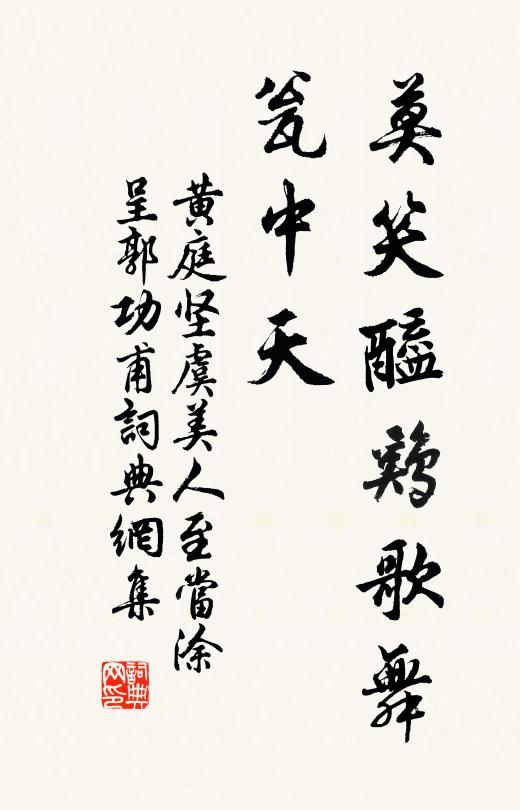 莫笑醯鷄歌舞
瓮中天
黄庭坚虞美人至當涂
呈郭功甫詞典網集
詞典網印